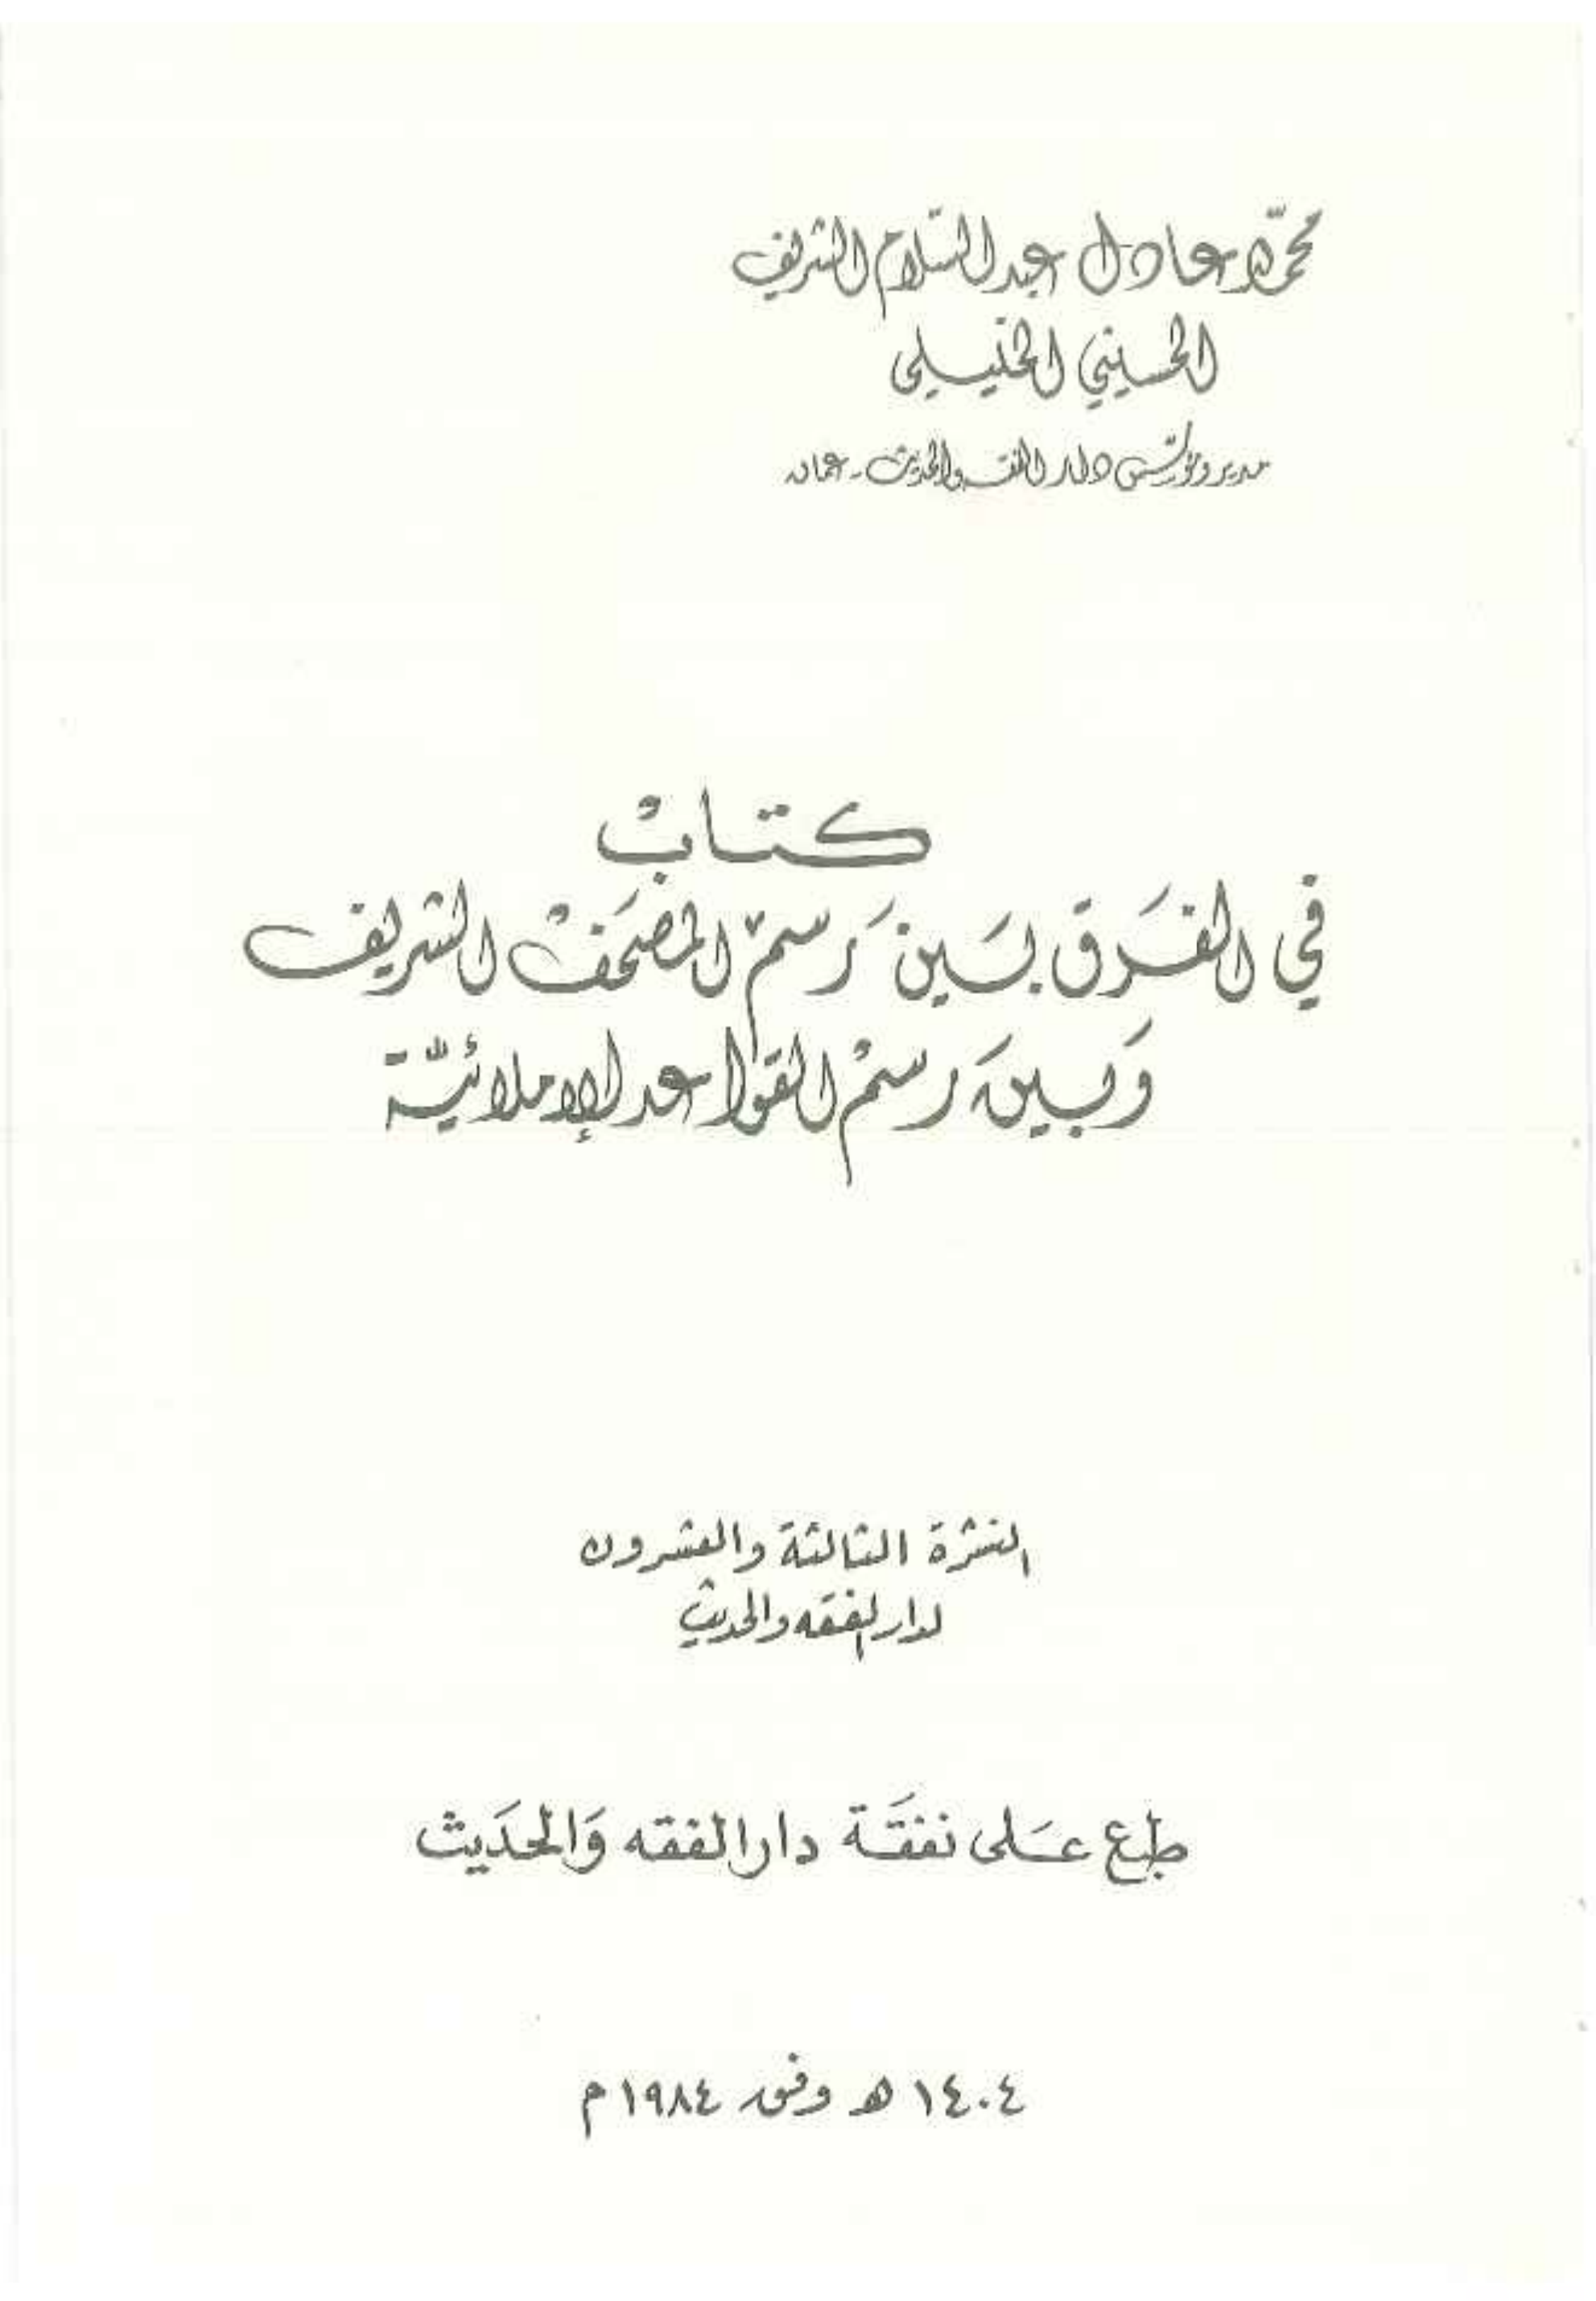 محمّد عادل عبد السّلام الشريف
الحسيني الخليلي
مدير ومؤسّس دار الفقه والحديث - عمان
كتابْ
في الفَرق بَين رَسمْ المصحَفْ الشريف
وَبين رسمْ القواعد الإملائيّة
النشرة الثالثة والعشرون
لدار الفقه والحديث
طبع عَلى نفقَة دار الفقه وَالحدَيث
١٤٠٤ هـ وفق ١٩٨٤ م